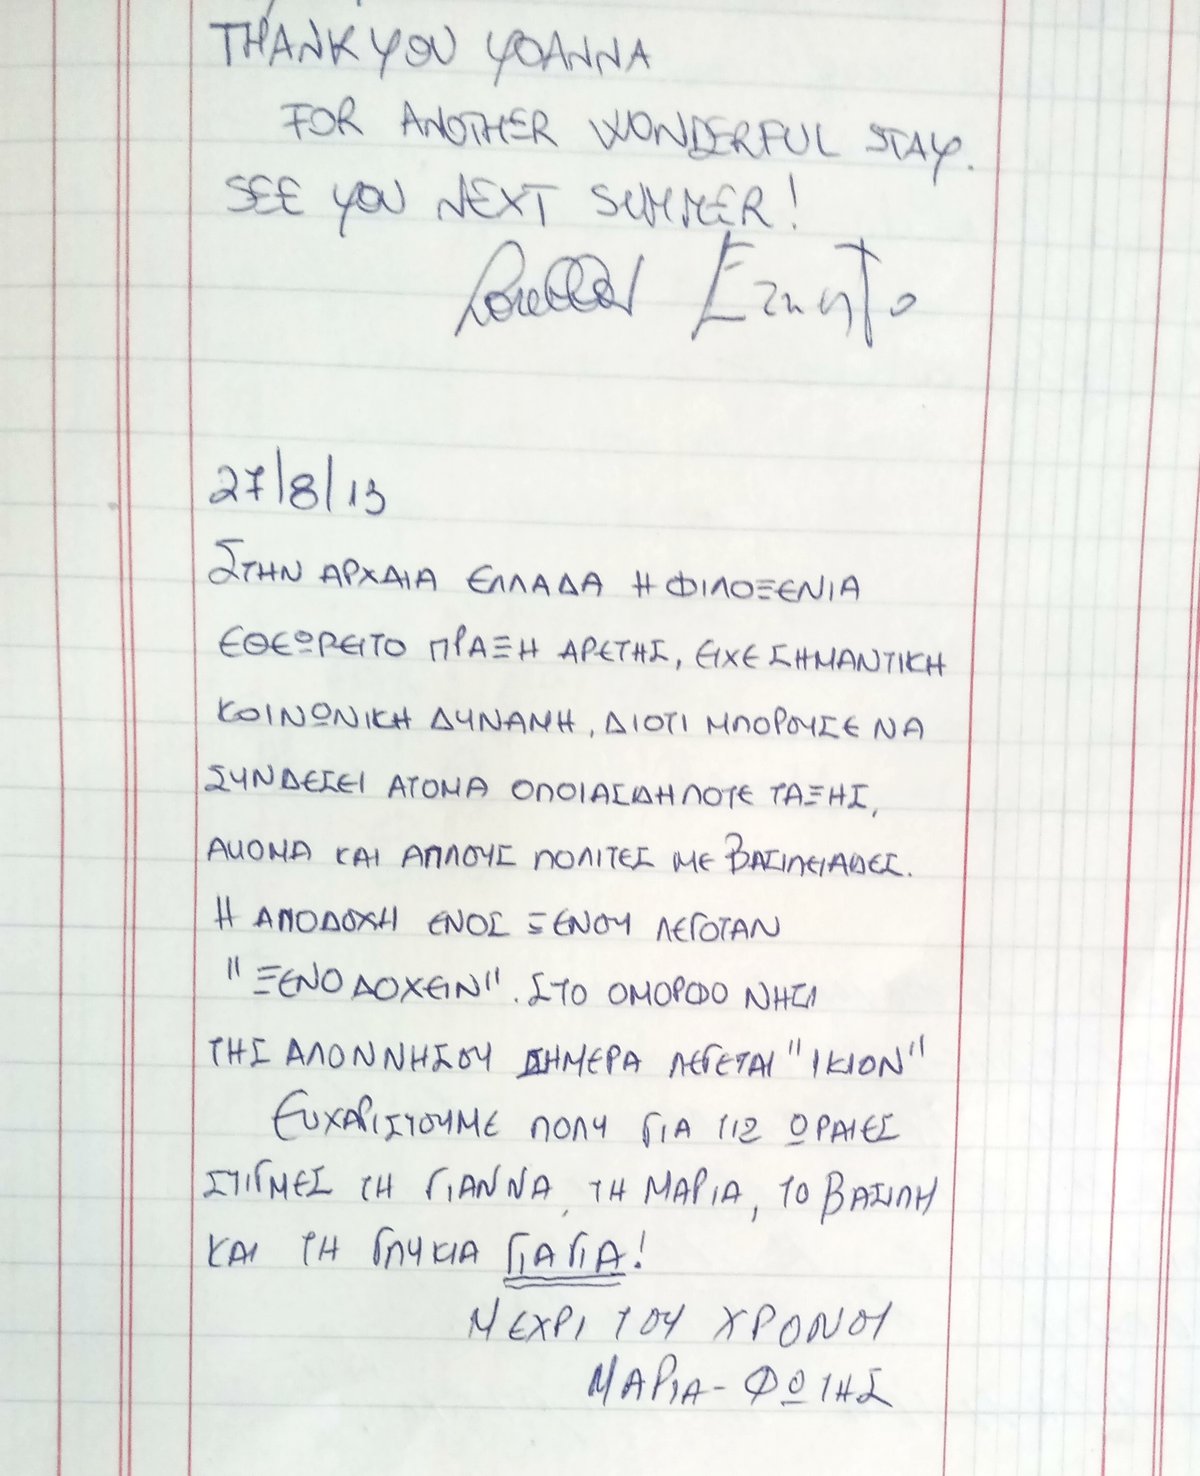 THANK YOU YOANNA
FOR ANOTHER WONDERFUL STAY.
SEE YOU NEXT SUMMER!
27/8/13
ΣΤΗΝ ΑΡΧΑΙΑ ΕΛΛΑΔΑ Η ΦΙΛΟΞΕΝΙΑ
ΕΘΕΩΡΕΙΤΟ ΠΡΑΞΗ ΑΡΕΤΗΣ, ΕΙΧΕ ΣΗΜΑΝΤΙΚΗ
ΚΟΙΝΩΝΙΚΗ ΔΥΝΑΜΗ, ΔΙΟΤΙ ΜΠΟΡΟΥΣΕ ΝΑ
ΣΥΝΔΕΣΕΙ ΑΤΟΜΑ ΟΠΟΙΑΣΔΗΠΟΤΕ ΤΑΞΗΣ,
ΑΚΟΜΑ ΚΑΙ ΑΠΛΟΥΣ ΠΟΛΙΤΕΣ ΜΕ ΒΑΣΙΛΕΙΑΔΕΣ.
Η ΑΠΟΔΟΧΗ ΕΝΟΣ ΞΕΝΟΥ ΛΕΓΟΤΑΝ
"ΞΕΝΟΔΟΧΕΙΝ". ΣΤΟ ΟΜΟΡΦΟ ΝΗΣΙ
ΤΗΣ ΑΛΟΝΝΗΣΟΥ ΣΗΜΕΡΑ ΛΕΓΕΤΑΙ "ΙΚΙΟΝ"
ΕΥΧΑΡΙΣΤΟΥΜΕ ΠΟΛΥ ΓΙΑ ΤΙΣ ΩΡΑΙΕΣ
ΣΤΙΓΜΕΣ ΤΗ ΓΙΑΝΝΑ, ΤΗ ΜΑΡΙΑ, ΤΟ ΒΑΣΙΛΗ
ΚΑΙ ΤΗ ΓΛΥΚΙΑ ΓΙΑΓΙΑ!
ΜΕΧΡΙ ΤΟΥ ΧΡΟΝΟΥ
ΜΑΡΙΑ - ΦΩΤΗΣ